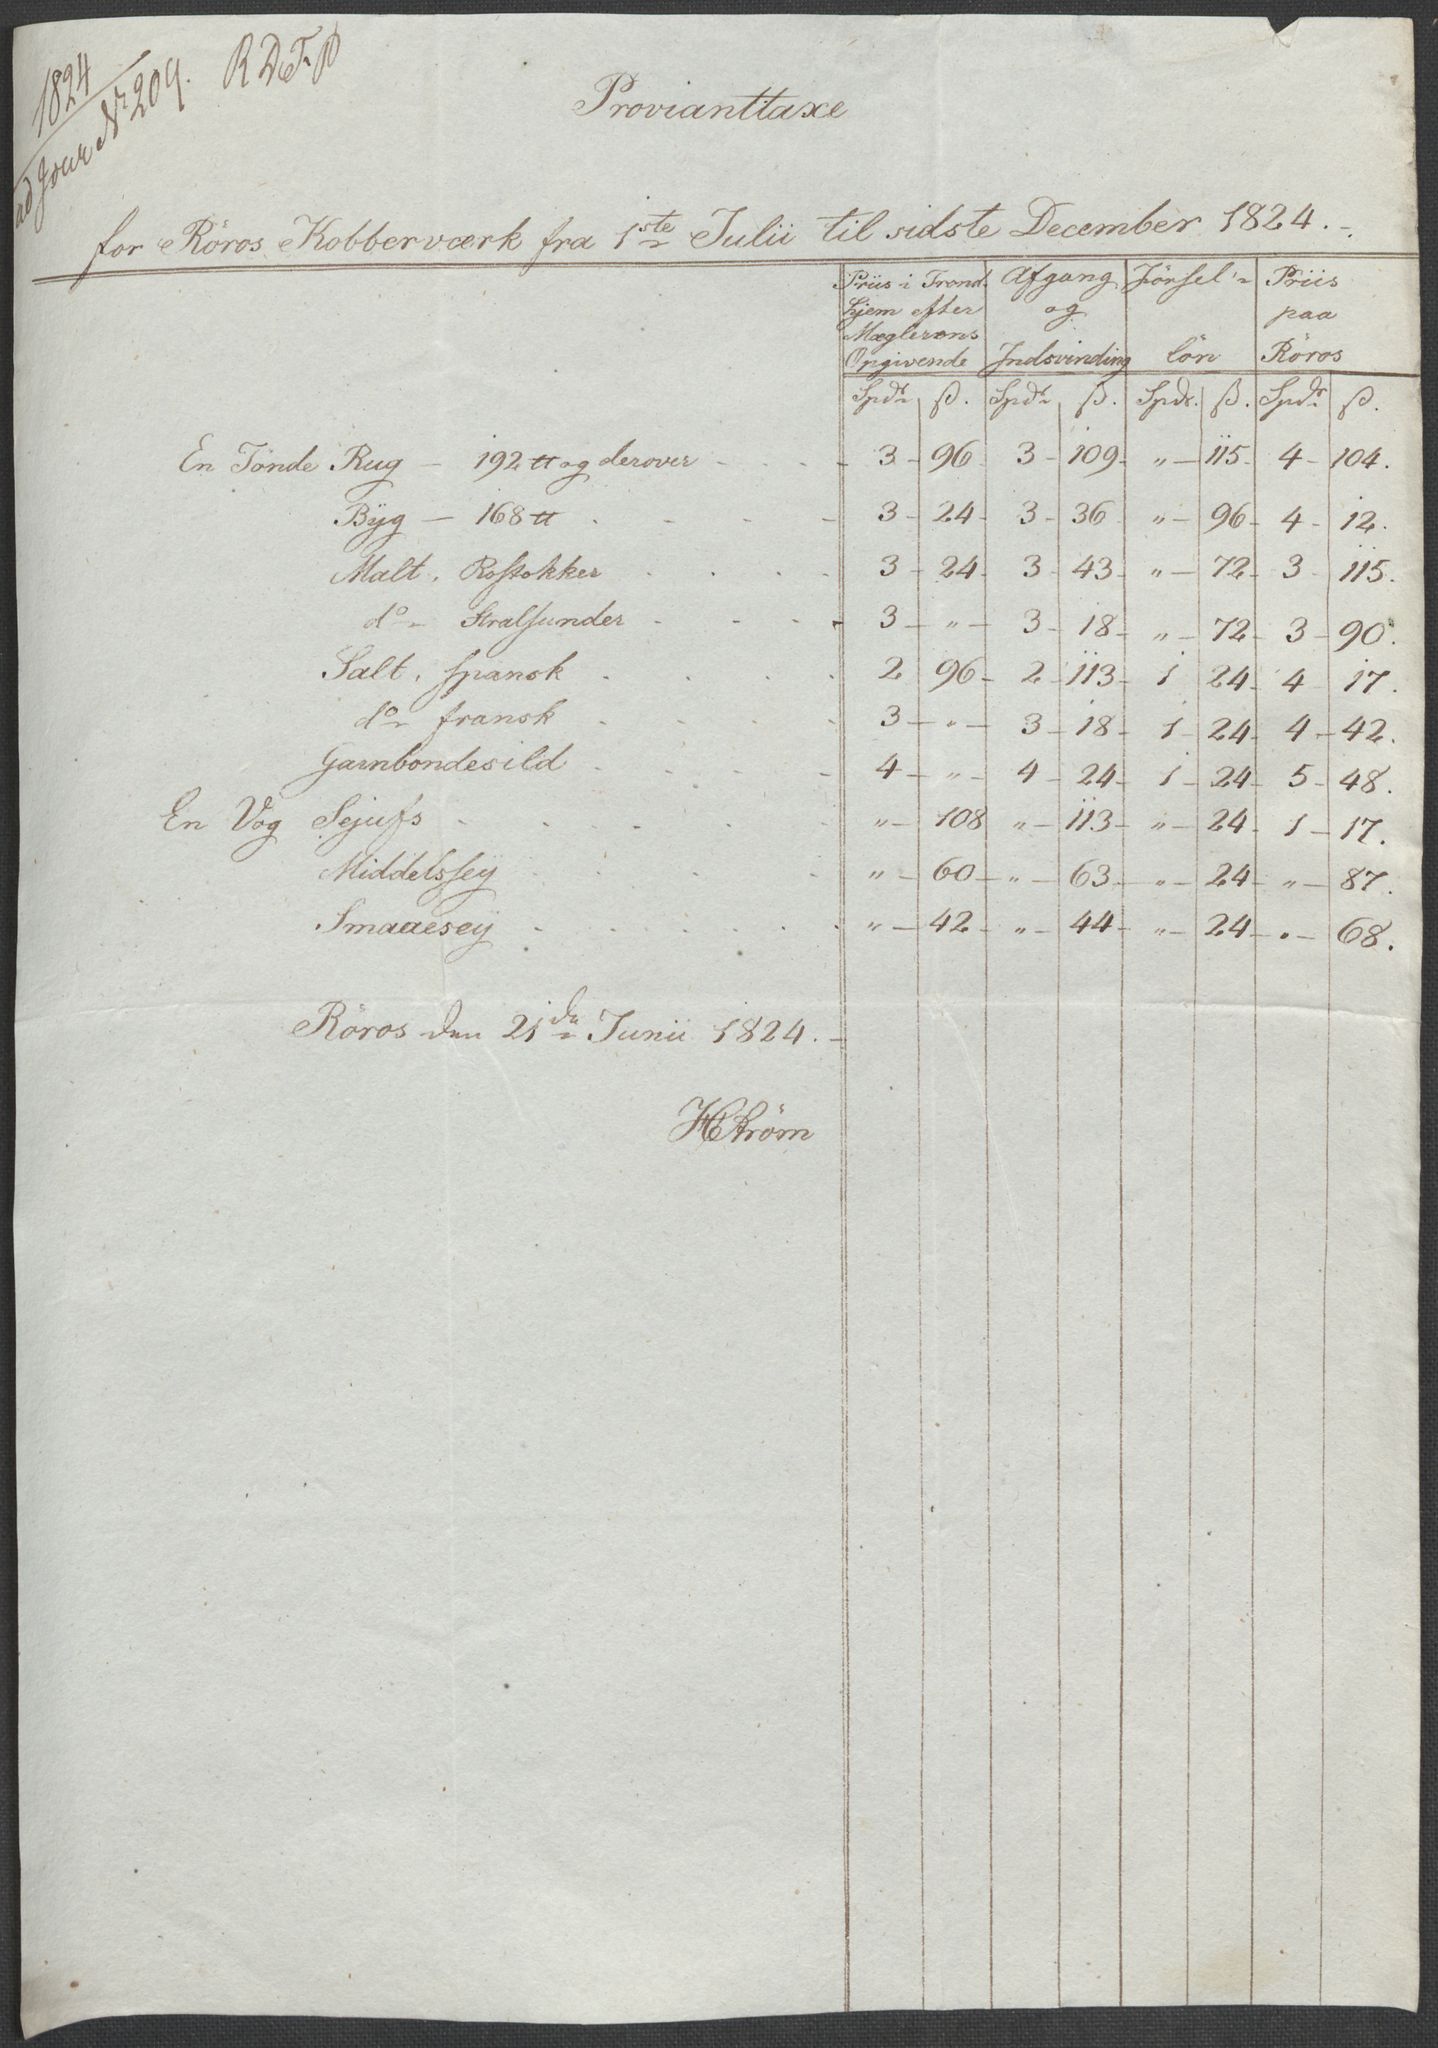 1824
ad Jour N 209. R D T P
Provianttaxe
for Röros Kobberværk fra 1ste Julii til sidste December 1824.
Priis i Trond- Afgang Förſel- Priis
hjem efter og paa
Mæglerens
Opgivende Indsvinding lön Röros
Spdr ß. Spdr ß. Spdr. ß. Spdr ß.
En Tönde Rug — 192 ℔ og derover 3 - 96 3 - 109 - " - 115 - 4 - 104.
Byg — 168 ℔ 3 - 24 - 3 - 36 " - 96 - 4 - 12.
Malt, Roſtokker 3 - 24 - 3 - 43 - " - 72 - 3 - 115.
do Stralſunder 3 - " - 3 - 18 - " - 72 - 3 - 90.
Salt, ſpansk 2 96 - 2 - 113 - 1 24 - 4 - 17.
do fransk 3 - " - 3 - 18 - 1 24 - 4 - 42.
Garnbondesild 4 - " - 4 - 24 - 1 24 - 5 - 48.
En Vog Sejufs " - 108 " - 113 - " - 24 - 1 - 17.
Middelsſey " - 60 - " - 63 - " - 24 - " - 87.
Smaaesey " - 42 - " - 44 - " - 24 - " - 68.
Röros den 21de Junii 1824.
HStröm